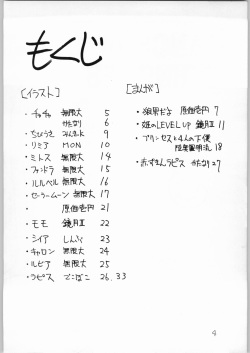 もくじ
[イラスト]
・チャチャ 無限大 5
かたなり 6
・ちびうさ みんみん 9
・リミア MON 10
・ミトス 無限大 14
・フォンドラ 無限大 15
・ルルベル 無限大 16
・セーラームーン 無限大 17
・ 原価壱円 21
・モモ 鏡月Ⅱ 22
・シイア しんじ 23
・キャロン 無限大 24
・ルビア 無限大 25
・ラピス でこぽこ 26.33
[まんが]
・限界だよ 原価壱円 7
・姫のLEVEL UP 鏡月Ⅱ 11
・プリンセスと4人の下僕
18
・赤ずきんラピス 27
4